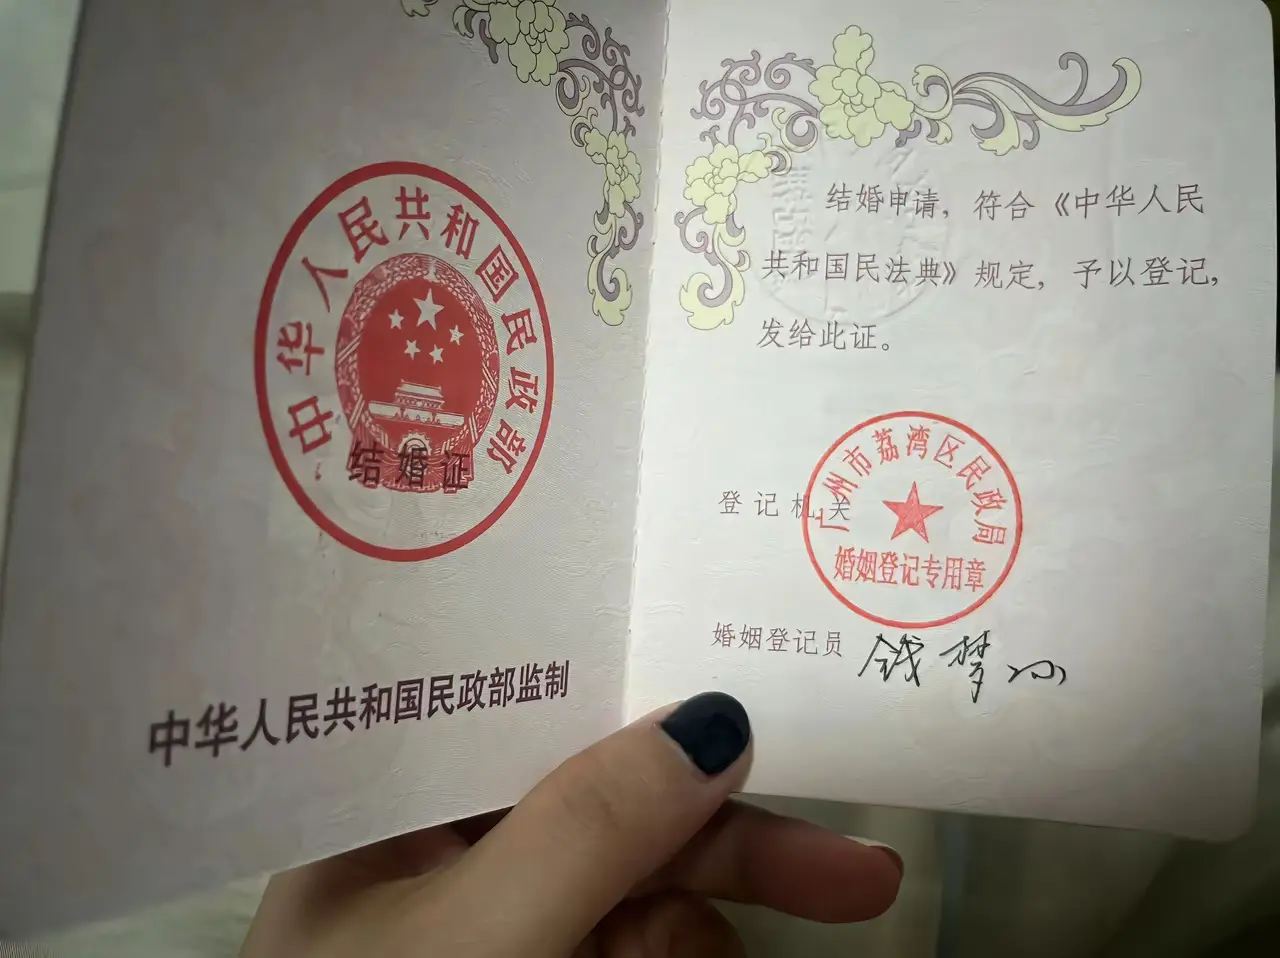 中华人民共和国民政部
结婚证
中华人民共和国民政部监制
结婚申请，符合《中华人民
共和国民法典》规定，予以登记，
发给此证。
登记机关
广州市荔湾区民政局
婚姻登记专用章
婚姻登记员 钱梦